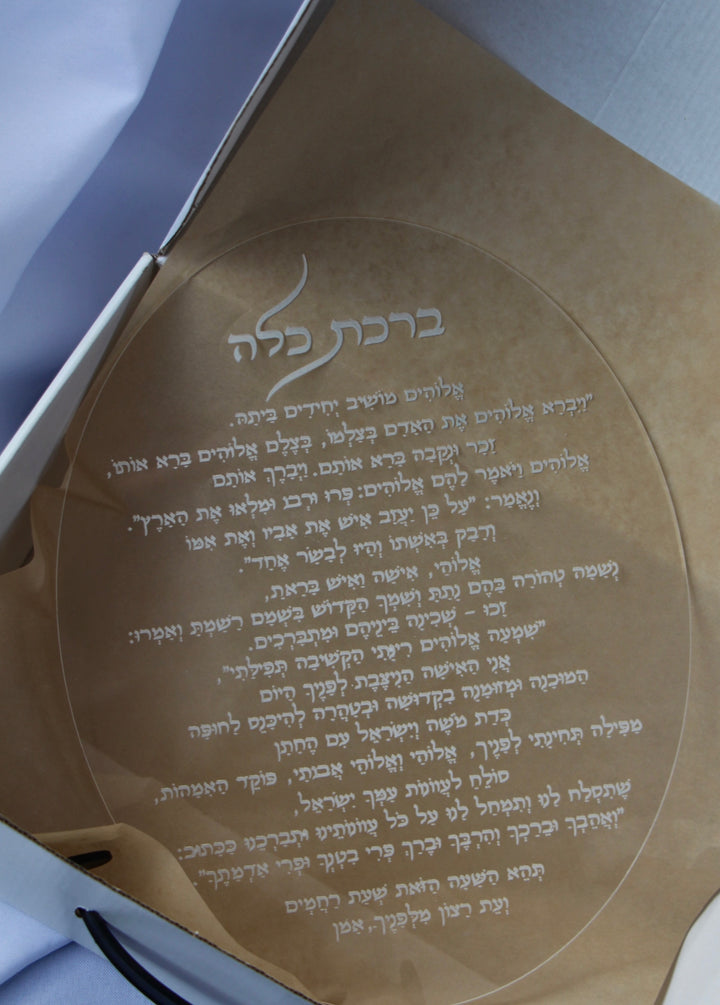 ברכת כלה
אֱלוֹהִים מוֹשִׁיב יְחִידִים בַּיְתָה.
"וַיִּבְרָא אֱלוֹהִים אֶת הָאָדָם בְּצַלְמוֹ, בְּצֶלֶם אֱלוֹהִים בָּרָא אוֹתוֹ,
זָכָר וּנְקֵבָה בָּרָא אוֹתָם. וַיְבָרֶךְ אוֹתָם
אֱלוֹהִים וַיֹּאמֶר לָהֶם אֱלוֹהִים: פְּרוּ וּרְבוּ וּמִלְאוּ אֶת הָאָרֶץ".
וְנֶאֱמַר: "עַל כֵּן יַעֲזֹב אִישׁ אֶת אָבִיו וְאֶת אִמּוֹ
וְדָבַק בְּאִשְׁתּוֹ וְהָיוּ לְבָשָׂר אֶחָד".
אֱלוֹהַי, אִישָׁה וְאִישׁ בָּרָאתָ,
נְשָׁמָה טְהוֹרָה בָּהֶם נָתַתָּ וְשִׁמְךָ הַקָּדוֹשׁ בִּשְׁמָם רָשַׁמְתָּ וְאָמְרוּ:
זָכוּ – שְׁכִינָה בֵּינֵיהֶם וּמִתְבָּרְכִים.
"שִׁמְעָה אֱלוֹהִים רִינָּתִי הַקְשִׁיבָה תְּפִילָּתִי",
אֲנִי הָאִישָׁה הַנִּיצֶּבֶת לְפָנֶיךָ הַיּוֹם
הַמּוּכָנָה וּמְזוּמֶּנָה בִּקְדוּשָּׁה וּבְטָהֳרָה לְהִיכָּנֵס לַחוּפָּה
כְּדַת מֹשֶׁה וְיִשְׂרָאֵל עִם הֶחָתָן
מַפִּילָה תְּחִינָתִי לְפָנֶיךָ, אֱלוֹהַי וֶאֱלוֹהֵי אֲבוֹתַי, פּוֹקֵד הָאִמָּהוֹת,
סוֹלֵחַ לַעֲווֹנוֹת עַמְּךָ יִשְׂרָאֵל,
שֶׁתִּסְלַח לָנוּ וְתִמְחַל לָנוּ עַל כֹּל עֲווֹנוֹתֵינוּ וּתְבָרְכֵנוּ כַּכָּתוּב:
"וַאֲהֵבְךָ וּבֵרַכְךָ וְהִרְבֶּךָ וּבֵרַךְ פְּרִי בִּטְנְךָ וּפְרִי אַדְמָתֶךָ".
תְּהֵא הַשָּׁעָה הַזֹּאת שְׁעַת רַחֲמִים
וְעֵת רָצוֹן מִלְּפָנֶיךָ, אָמֵן